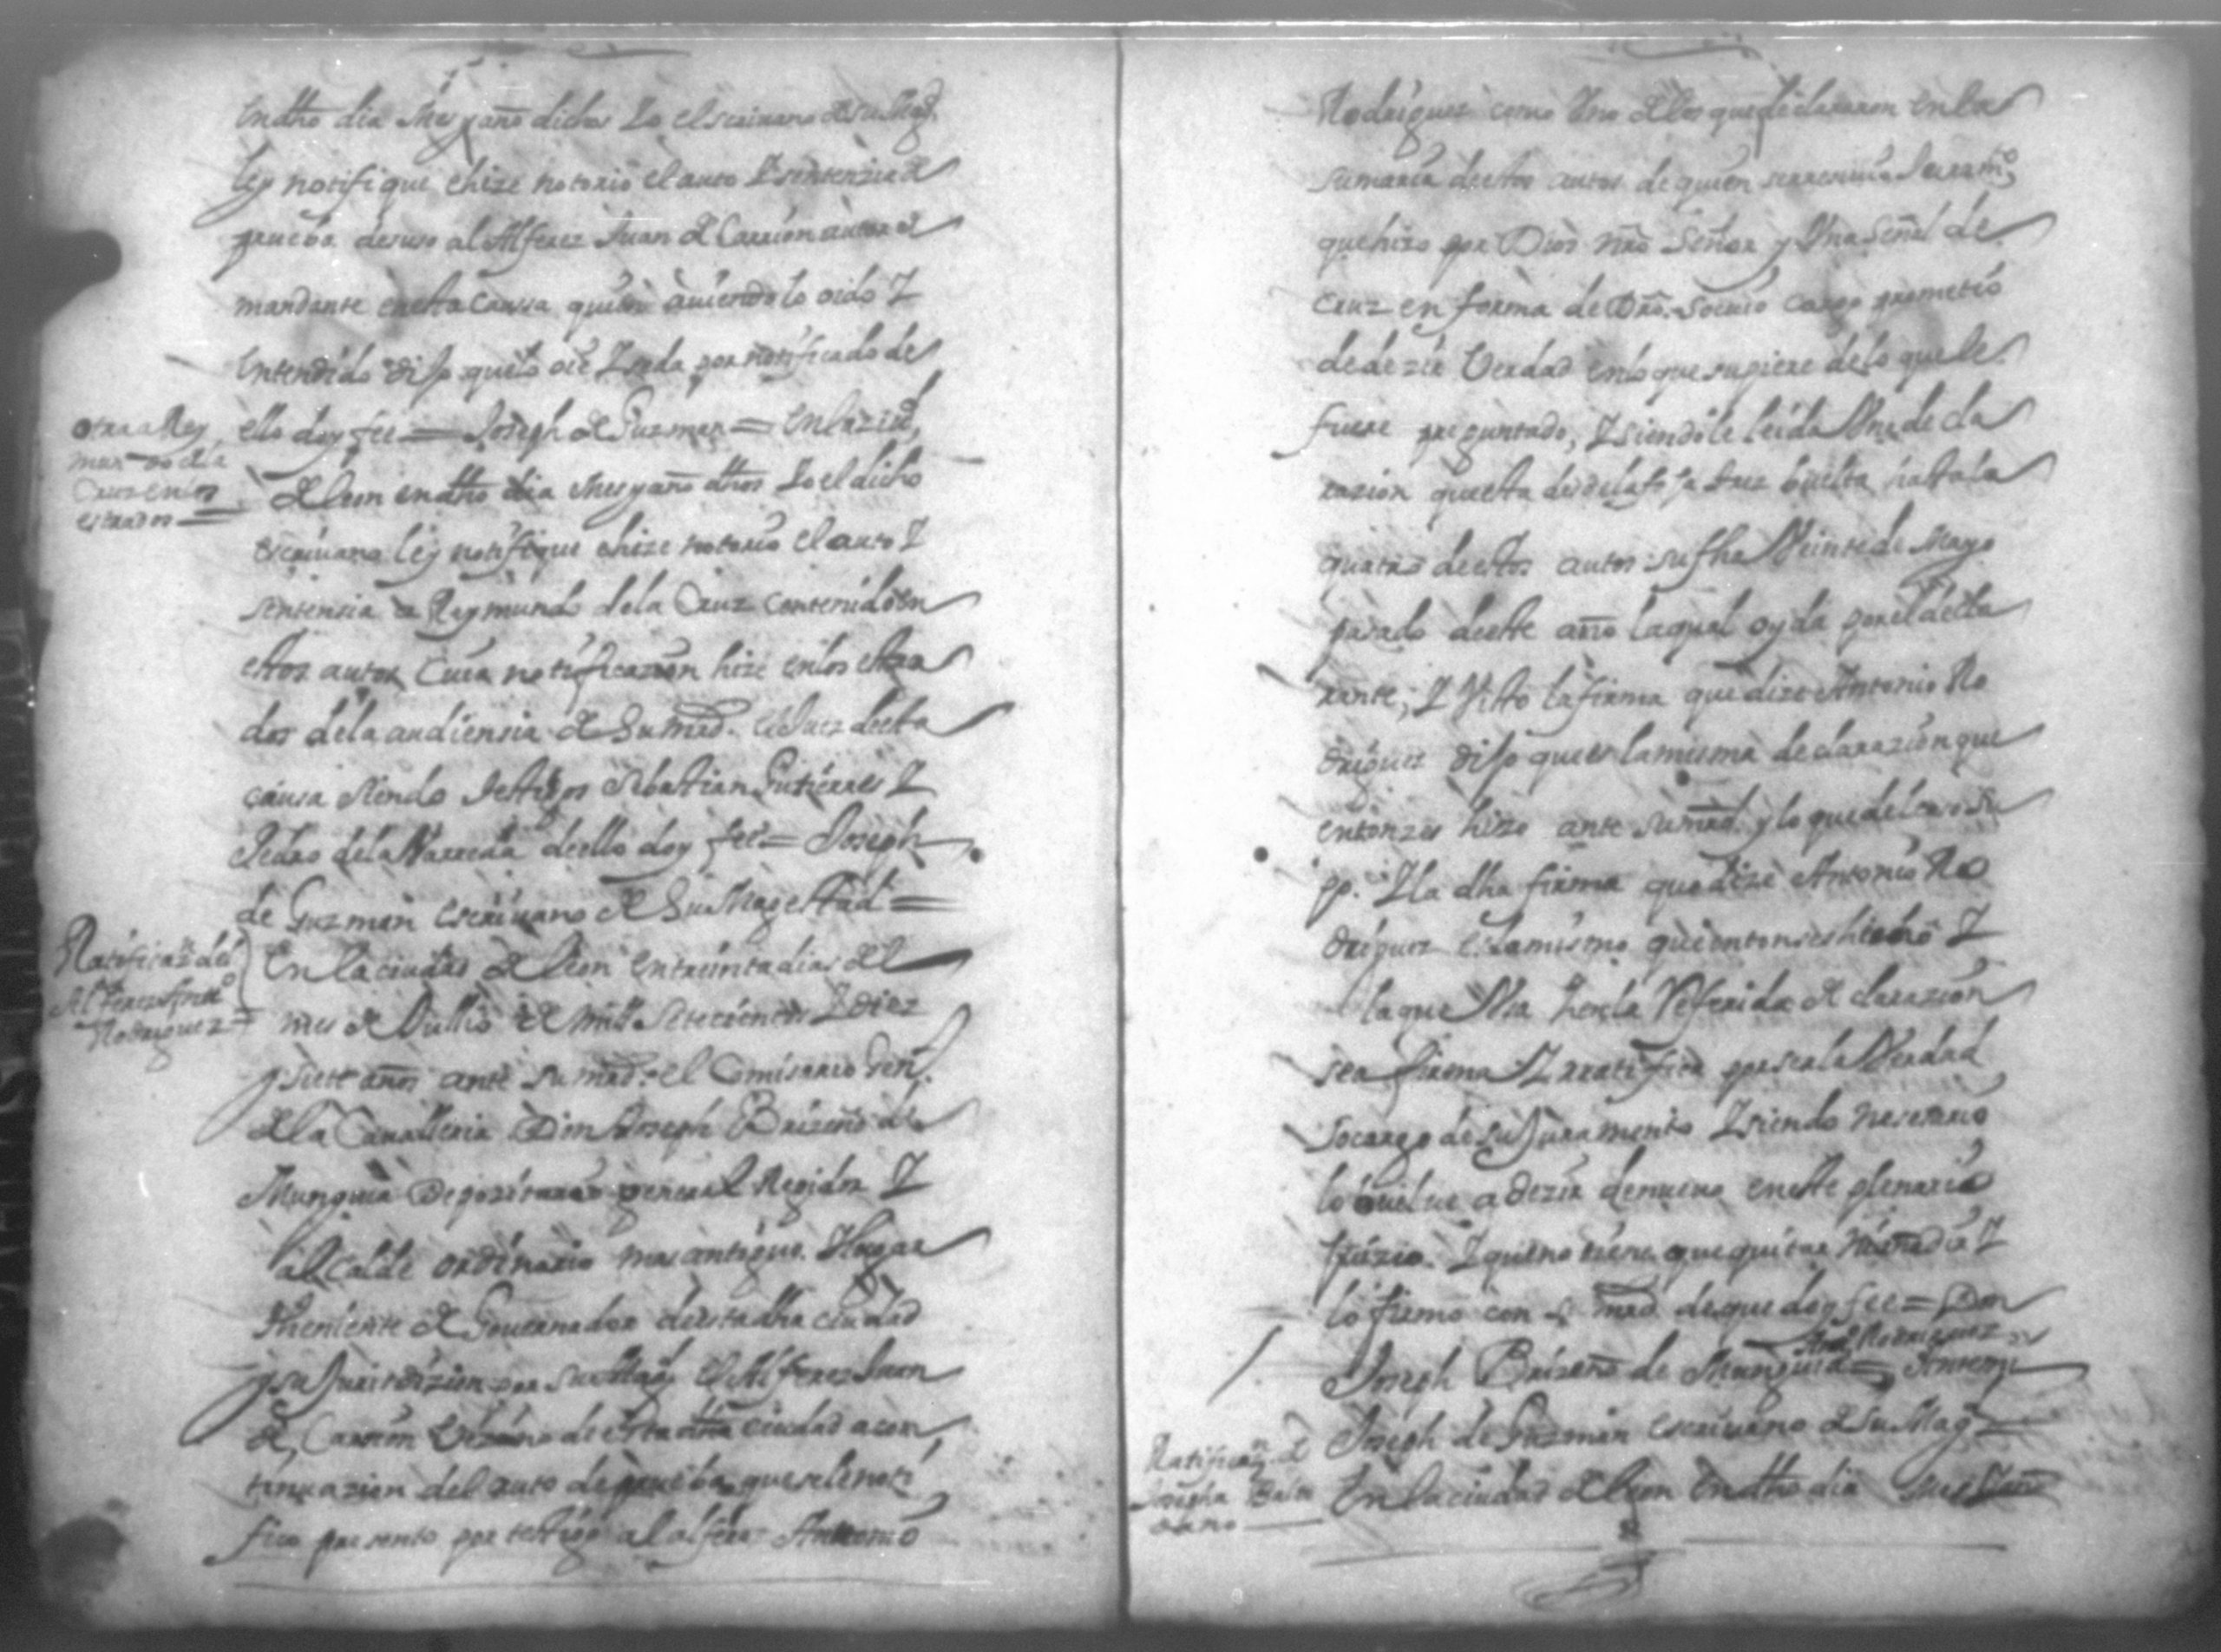 En dho dia mes y año dichos Yo el scrivano de su Magd.
ley notifique e hize notorio el auto Y sentenzia de
prueba de suso al Alferez Juan de Carrion
mandante en esta Caussa quien aviendolo oido Y
Entendido dijo que lo oie Y se da por notificado de
ello doy fee = Joseph de Guzman = En la ziud,
otra a Rey
mundo de la
Cruz en los
estrados =
de leon en dho dia mes y año dhos Yo el dicho
escrivano ley notifique e hize notorio el auto Y
sentensia a Reymundo dela Cruz contenido en
estos autos Cuia notificazion hize en los estra
dos dela audiensia de Su mrd. el Juez desta
causa siendo testigos Sebastian Gutierres Y
Pedro dela Varreda dello doy fee = Joseph
de Guzman escrivano de Su Magestad =
Ratificaz.n del
Alferez Anto
Rodriguez =
En la ciudad de leon en treinta dias del
mes de Jullio de mill setecientos Y diez
y siete años ante su mrd. el Comisario Gen.l
de la Cavalleria Don Joseph Brizeño de
Munguia Depozitario general Regidor Y
alcalde ordinario mas antiguo. Y lugar
theniente de Governador desta dha ciudad
y su Jurisdizion por su Magd. el Alferez Juan
de Carrion Vezino de esta dha ciudad a con,
tinuazion del auto de prueba que se le noti
fico presento por testigo al alferez Antonio
Rodriguez como Uno de los que declararon en la
sumaria destos autos de quien Juram.to
que hizo por Dios nro Señor y Una señal de
Cruz en forma de Dro. so cuio cargo prometio
de dezir Verdad en lo que supiere de lo que le
fuere preguntado, Y siendole leida Una decla
razion que esta desde la foja tres buelta hasta la
quatro de estos autos su fha Veinte de Mayo
pasado deeste año la qual oyda por el decla
rante, Y Visto la firma que dize Antonio Ro
driguez dijo que es la misma declarazion que
entonzes hizo ante su mrd. y lo que
pp. Y la dha firma que dize Antonio Ro
driguez es la mismo que entonses Y
la que Usa la Referida declarazion
sea firma Y rratifica por ser la Verdad
so cargo de su Juramento Y siendo nesesario
lo buelve a dezir de nuevo en este plenario
Juizio. Y que no tiene que quitar ni añadir Y
lo firmo con su mrd. de que doy fee = Don
Joseph Brizeño de Munguia = Anto Rodriguez = Ante mi
Joseph de Guzman escrivano de su Magd =
Ratificaz.n de
Josepha Balto
dano
En la ciudad de leon En dho dia mes Y año